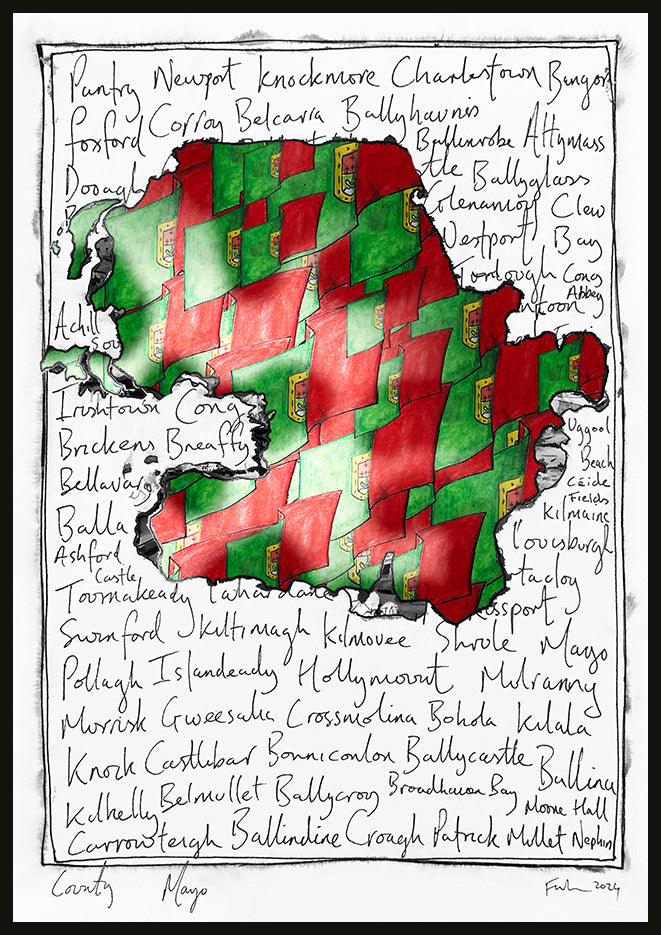 Pantry Newport Knockmore Charlestown Bangor
Foxford Corroy Belcarra Ballyhaunis
Ballinrobe Attymass
Dooagh
tle Ballyglass
Glenamoy Clew
Westport Bay
Turlough Cong
Abbey
ntoon
Achill
Sou
Irishtown Cong
Brickens Breaffy
Uggool
Beach
Bellavary
Céide
Fields
Balla
Kilmaine
Ashford
Castle
Louisburgh
Tourmakeady Lahardane
taloy
Rossport
Swinford Kiltimagh Kilmovee Shrule Mayo
Pollagh Islandeady Hollymount Mulranny
Murrisk Gweesalia Crossmolina Bohola Kilala
Knock Castlebar Bonniconlon Ballycastle Ballina
Kilkelly Belmullet Ballycroy Broadhaven Bay
Moore Hall
Carrowteigh Ballindine Croagh Patrick Mullet Nephin
County Mayo
2024